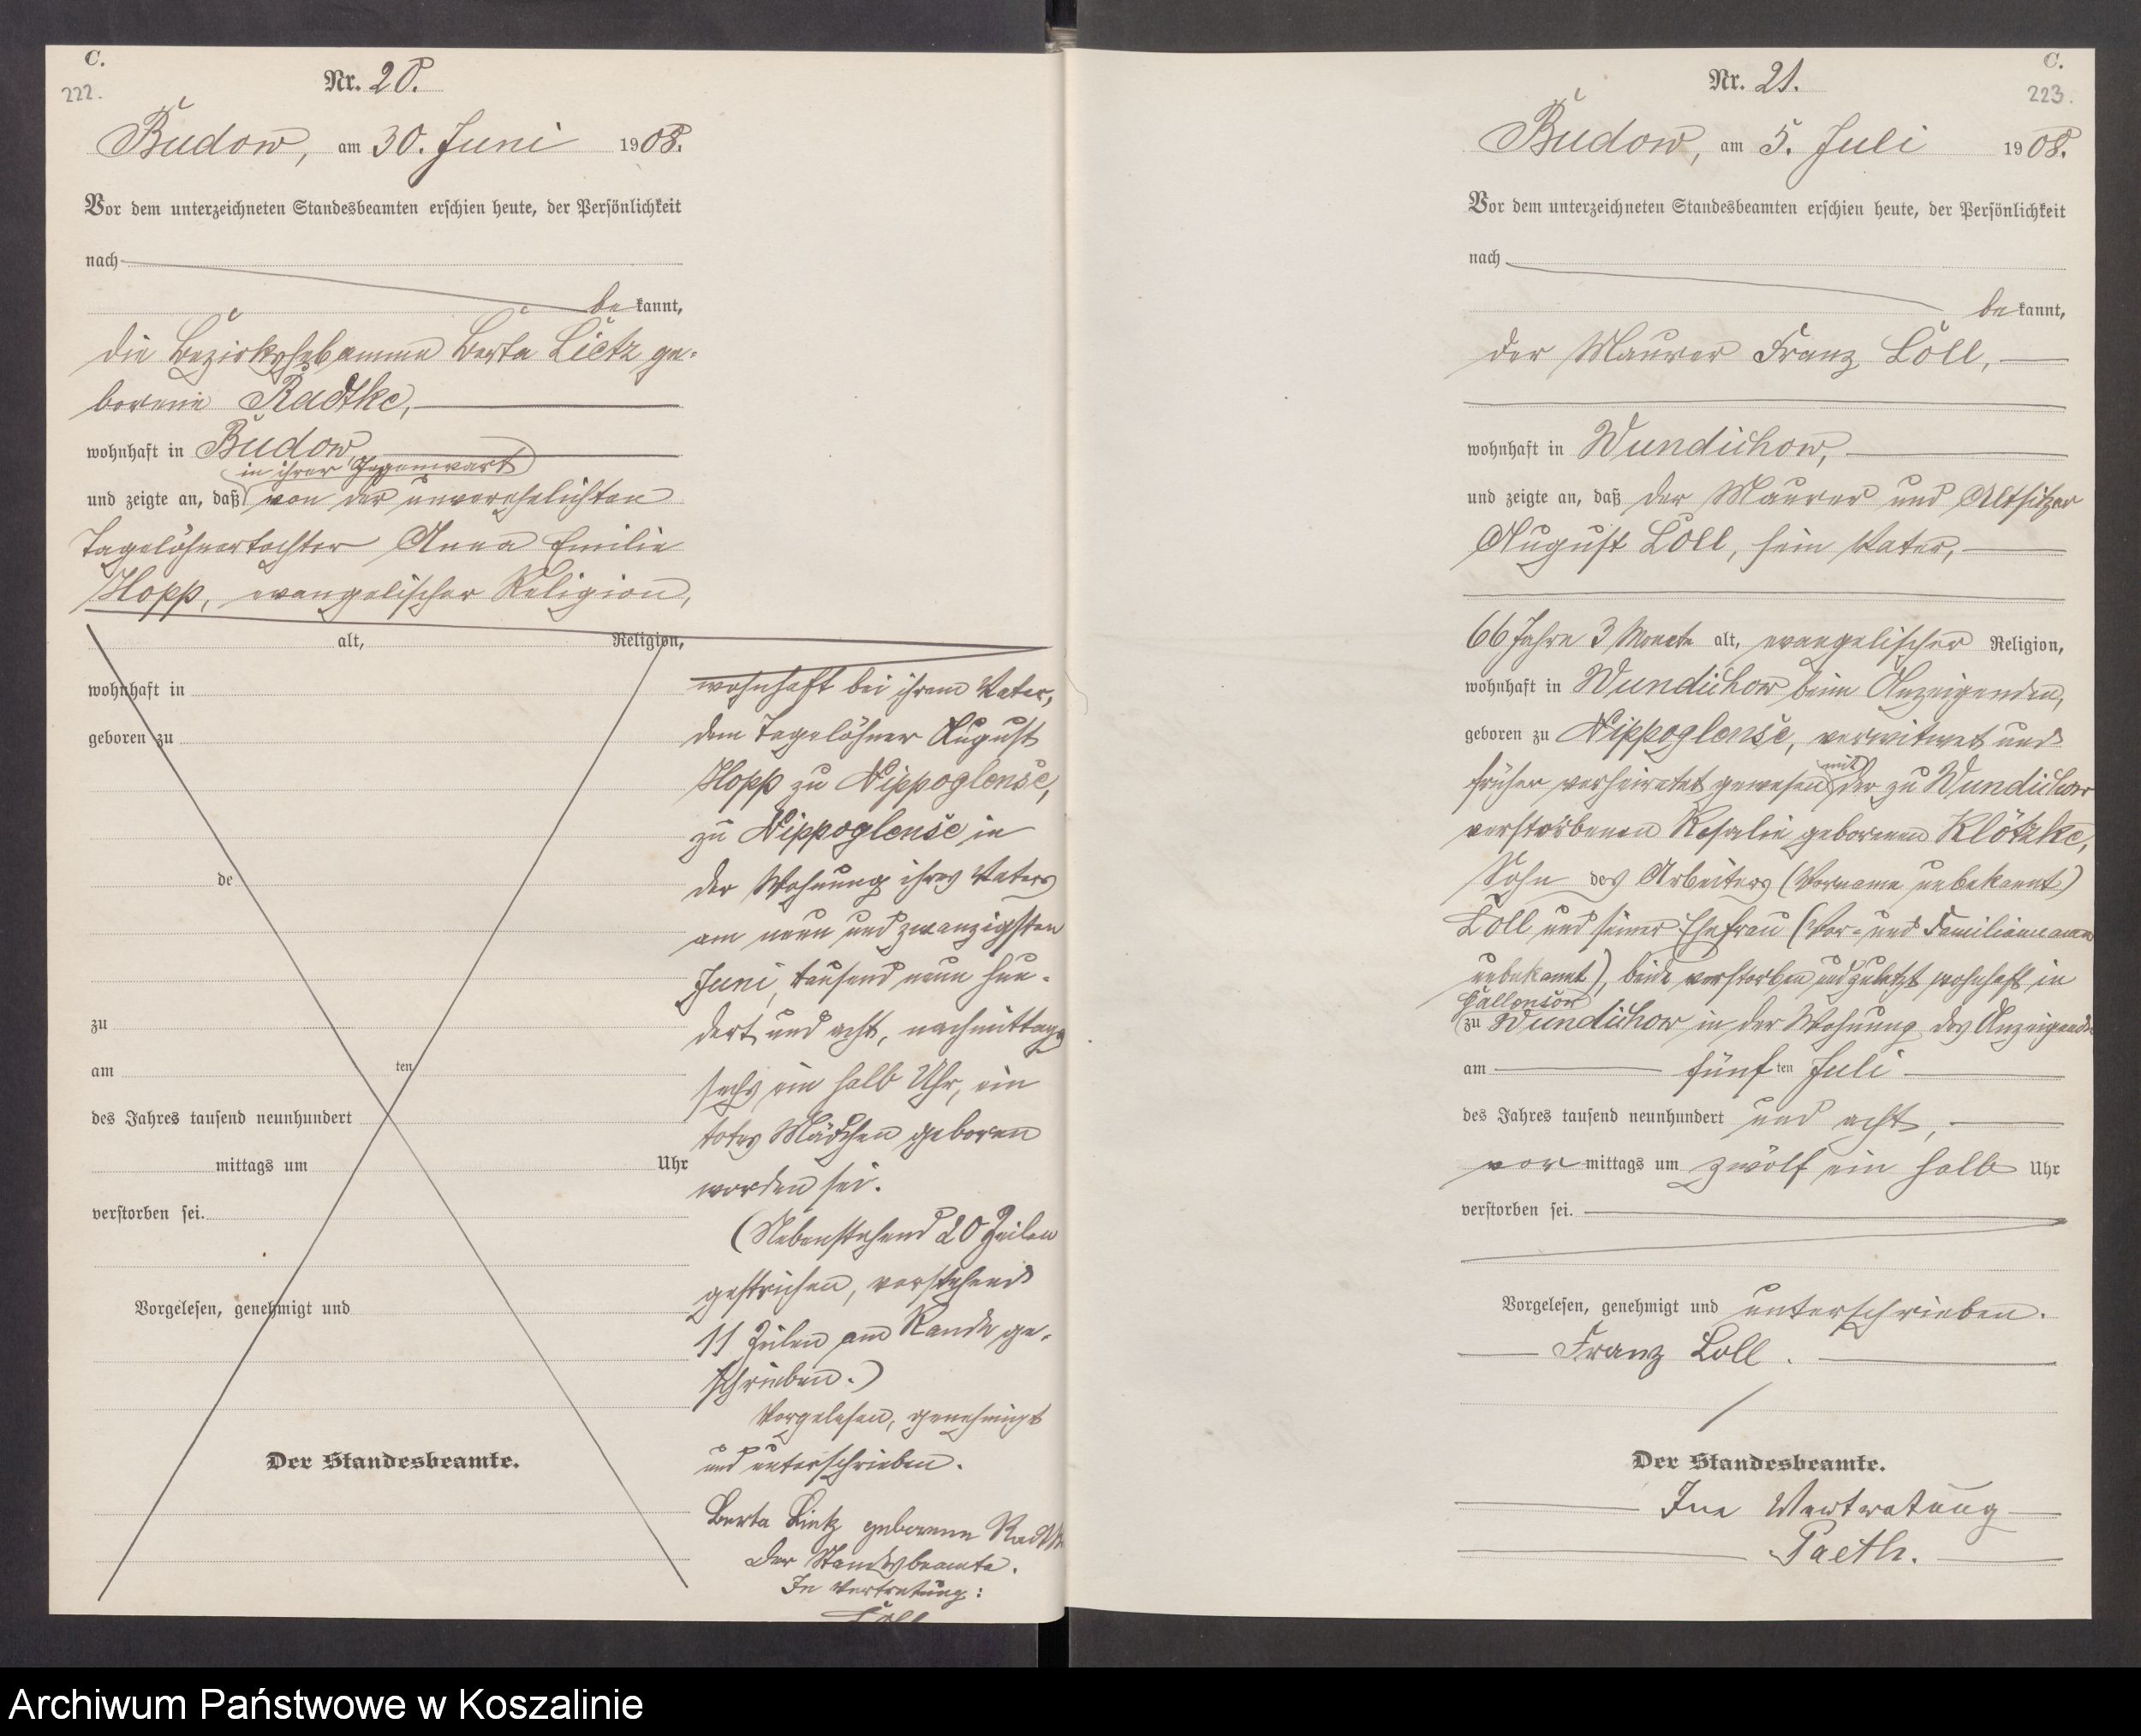 C.
222.
Nr. 20.
Budow, am 30. Juni 1908.
Vor dem unterzeichneten Standesbeamten erschien heute, der Persönlichkeit
nach
be kannt,
die Bezirkshebamme Berta Lietz ge-
borene Radtke,
wohnhaft in Budow,
in ihrer Gegenwart
und zeigte an, daß von der unverehelichten
Tagelöhnertochter Anna Emilie
Hopp, evangelischer Religion,
alt, Religion,
wohnhaft in
geboren zu
de
zu
am ten
des Jahres tausend neunhundert
mittags um Uhr
verstorben sei.
Vorgelesen, genehmigt und
Der Standesbeamte.
wohnhaft bei ihrem Vater,
dem Tagelöhner August
Hopp zu Nippoglense,
zu Nippoglense in
der Wohnung ihres Vaters
am neun und zwanzigsten
Juni, tausend neun hun-
dert und acht, nachmittags
sechs ein halb Uhr, ein
totes Mädchen geboren
worden sei.
(Nebenstehend 20 Zeilen
gestrichen, vorstehend
11 Zeilen am Rande ge-
schrieben.)
Vorgelesen, genehmigt
und unterschrieben.
Berta Lietz geborene Radtke
Der Standesbeamte.
In Vertretung:
Löll
C.
223.
Nr. 21.
Budow, am 5. Juli 1908.
Vor dem unterzeichneten Standesbeamten erschien heute, der Persönlichkeit
nach
be kannt,
der Maurer Franz Löll,
wohnhaft in Wundichow,
und zeigte an, daß der Maurer und Altsitzer
August Löll, sein Vater,
66 Jahre 3 Monate alt, evangelischer Religion,
wohnhaft in Wundichow beim Anzeigenden,
geboren zu Nippoglense, verwitwet und
früher verheiratet gewesen mit der zu Wundichow
verstorbenen Rosalie geborenen Klötzke,
Sohn des Arbeiters (Vorname unbekannt)
Löll und seiner Ehefrau (Vor- und Familienname
unbekannt), beide verstorben und zuletzt wohnhaft in
Gallensow
zu Wundichow in der Wohnung des Anzeigenden
am fünf ten Juli
des Jahres tausend neunhundert und acht,
vor mittags um zwölf ein halb Uhr
verstorben sei.
Vorgelesen, genehmigt und unterschrieben.
Franz Löll.
Der Standesbeamte.
In Vertretung
Paeth.
Archiwum Państwowe w Koszalinie